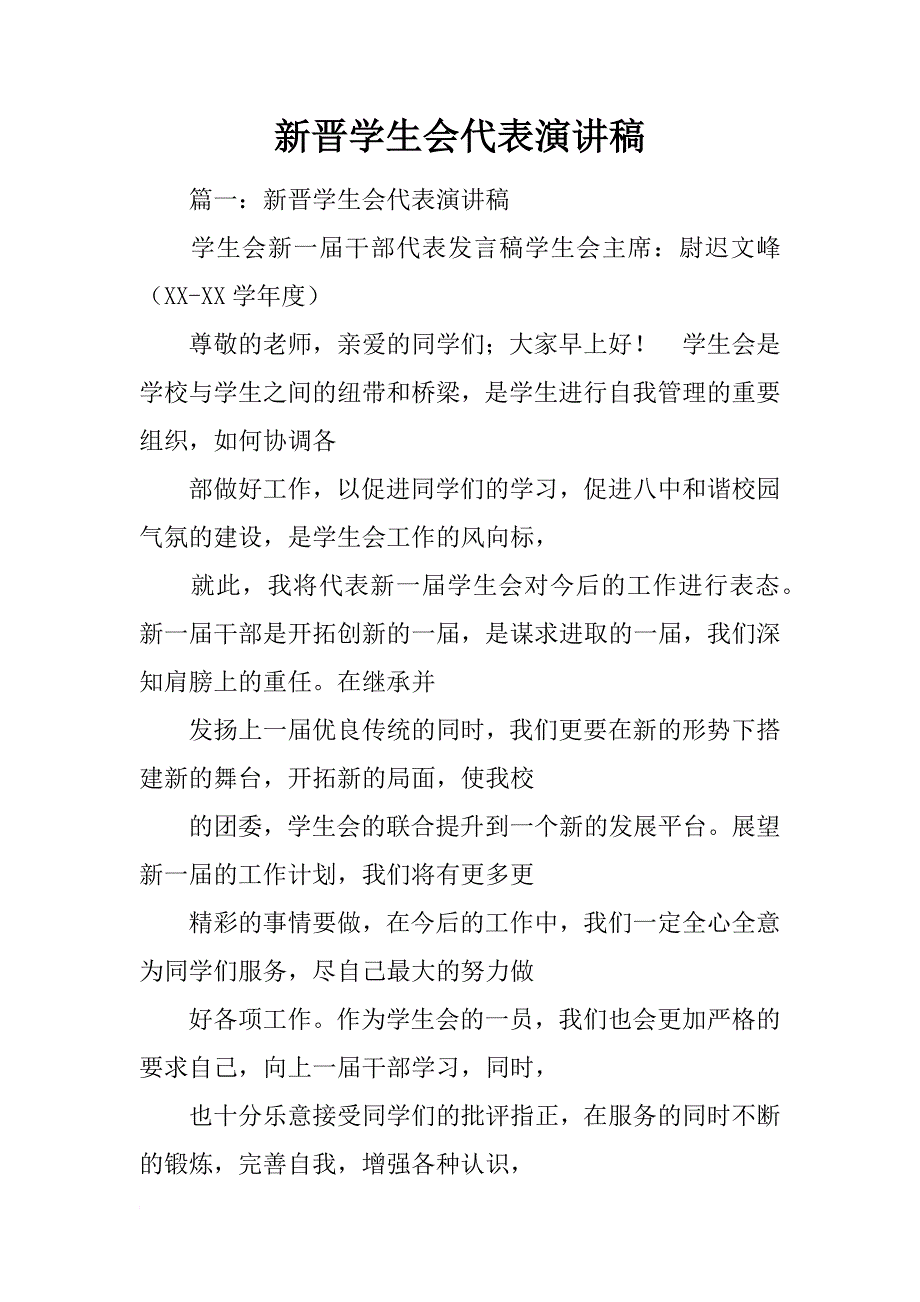 新晋学生会代表演讲稿
篇一：新晋学生会代表演讲稿
学生会新一届干部代表发言稿学生会主席：尉迟文峰
（XX-XX 学年度）
尊敬的老师，亲爱的同学们；大家早上好！　学生会是
学校与学生之间的纽带和桥梁，是学生进行自我管理的重要
组织，如何协调各
部做好工作，以促进同学们的学习，促进八中和谐校园
气氛的建设，是学生会工作的风向标，
就此，我将代表新一届学生会对今后的工作进行表态。
新一届干部是开拓创新的一届，是谋求进取的一届，我们深
知肩膀上的重任。在继承并
发扬上一届优良传统的同时，我们更要在新的形势下搭
建新的舞台，开拓新的局面，使我校
的团委，学生会的联合提升到一个新的发展平台。展望
新一届的工作计划，我们将有更多更
精彩的事情要做，在今后的工作中，我们一定全心全意
为同学们服务，尽自己最大的努力做
好各项工作。作为学生会的一员，我们也会更加严格的
要求自己，向上一届干部学习，同时，
也十分乐意接受同学们的批评指正，在服务的同时不断
的锻炼，完善自我，增强各种认识，